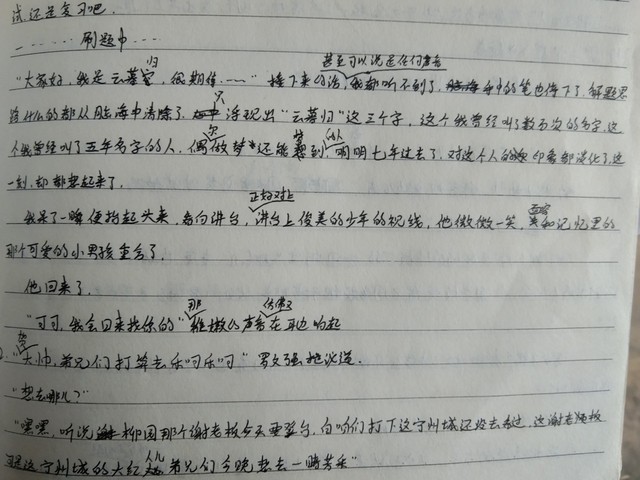 试,还是复习吧.
- ····· 刷题中 ····
"大家好,我是云暮归,很期待……" 接下来的话,甚至可以说是任何声音我都听不到了,手中的笔也停下了,解题思
路什么的都从脑海中清除了.只浮现出"云暮归"这三个字,这个我曾经叫了数万次的名字,这
个我曾经叫了五年名字的人,偶尔做梦还能梦到的人,明明七年过去了,对这个人的印象都淡化了,这
一刻,却都想起来了.
我晃了一瞬便抬起头来,看向讲台,正好对上讲台上俊美的少年的视线,他微微一笑,和记忆里的
那个可爱的小男孩重合了.
他回来了.
"可可,我会回来找你的" 那稚嫩的声音仿佛又在耳边响起
"大帅,弟兄们打算去乐呵乐呵" 罗文强提议道.
"想去哪儿?"
"嘿嘿,听说柳园那个谢老板今天要登台,自咱们打下这宁州城还没去看过,这谢老板
可是这宁州城的大红人儿,弟兄们今晚想去一睹芳采"